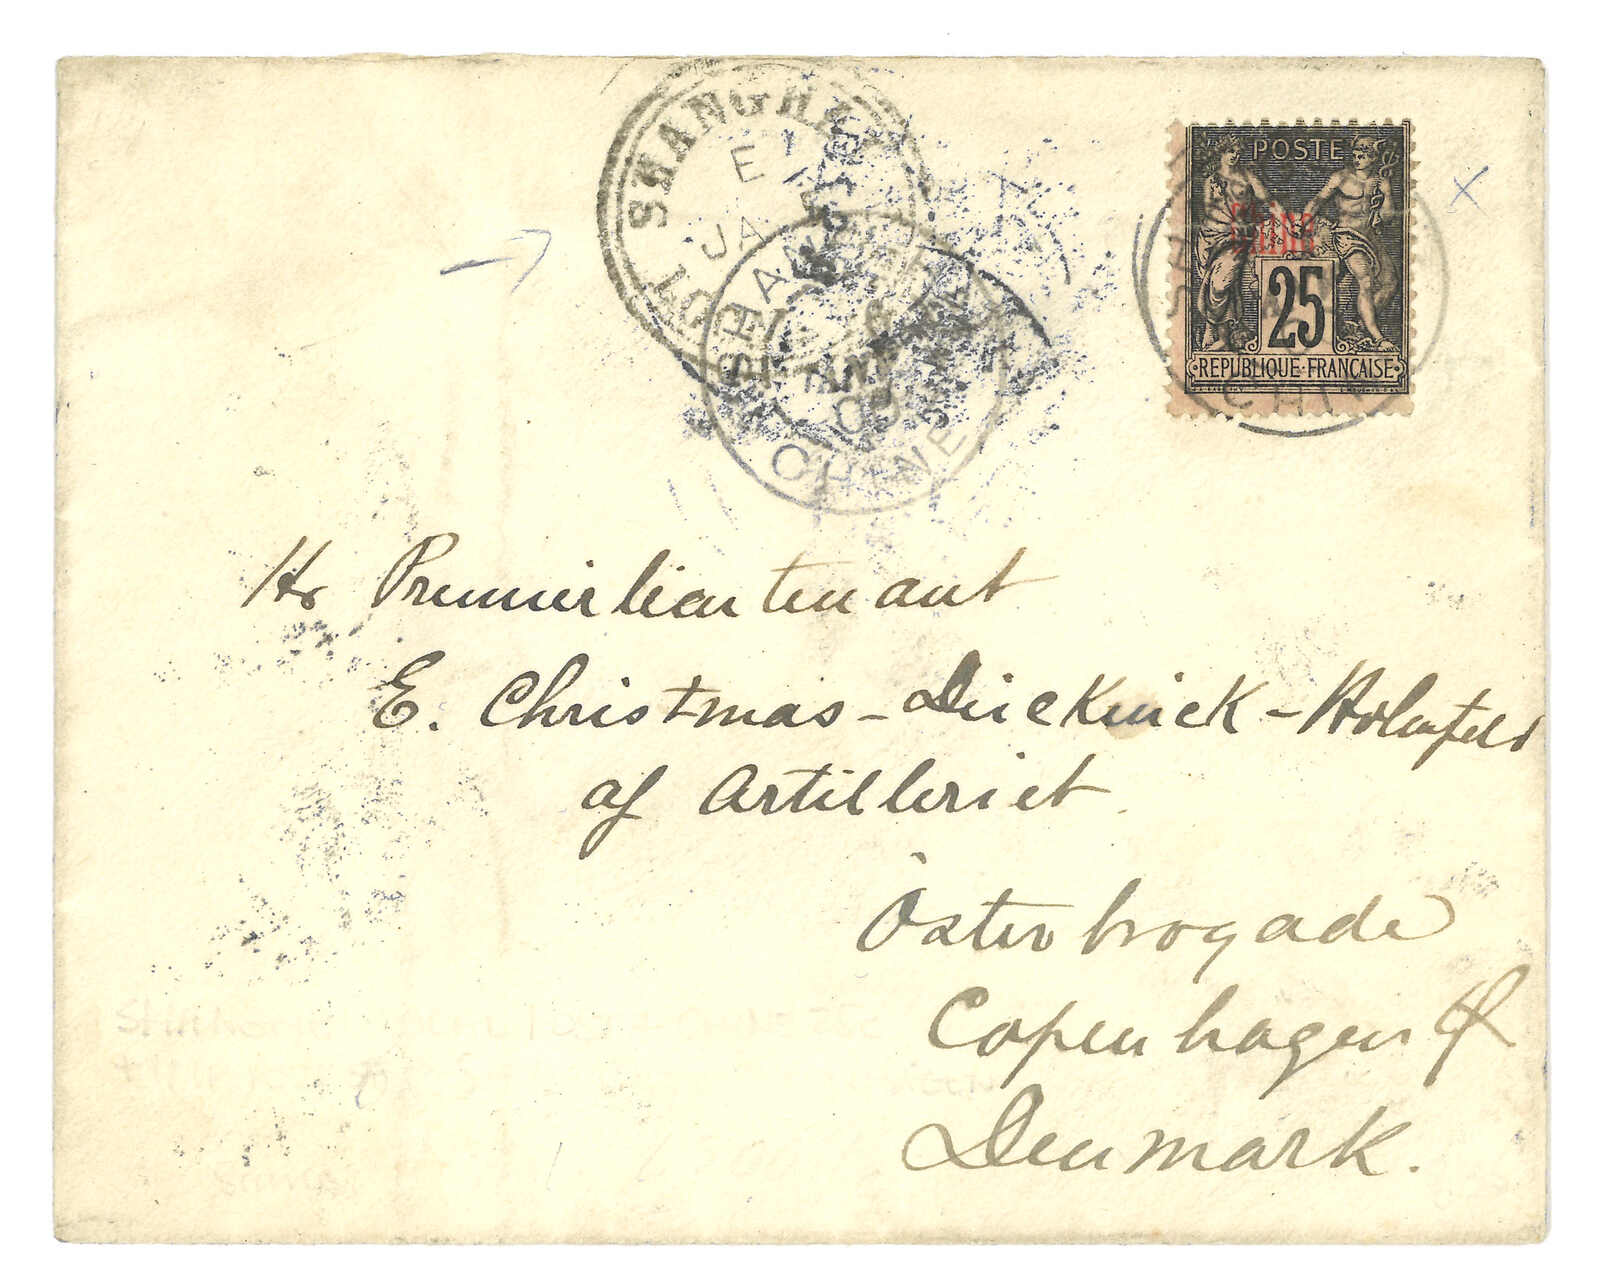 SHANGHAI
E
JA
LOCAL POST
SHANG-HAI
CHINE
POSTE
Chine
25
REPUBLIQUE FRANCAISE
CHINE
X
Hr Premierlieutenant
E. Christmas-Dirckinck-Holmfeld
af Artilleriet
Österbrogade
Copenhagen Ø
Denmark.